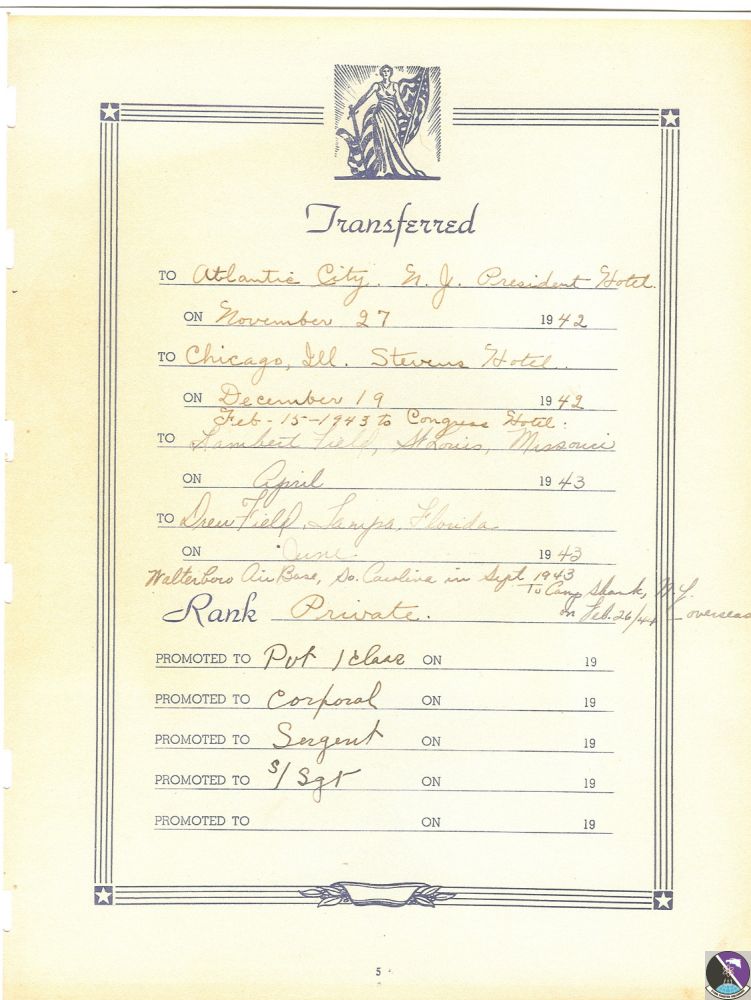 Transferred
TO Atlantic City, N. J. President Hotel.
ON November 27 1942
TO Chicago, Ill. Stevens Hotel.
ON December 19 1942
Feb - 15-1943 to Congress Hotel.
TO Lambert Field, St Louis, Missouri
ON April 1943
TO Drew Field, Tampa, Florida
ON June 1943
Walterboro Air Base, So. Carolina in Sept 1943
To Camp Shank, N.Y.
on Feb. 26/44 - overseas
Rank Private.
PROMOTED TO Pvt 1 class ON 19
PROMOTED TO Corporal ON 19
PROMOTED TO Sergent ON 19
PROMOTED TO S/Sgt ON 19
PROMOTED TO ON 19
5